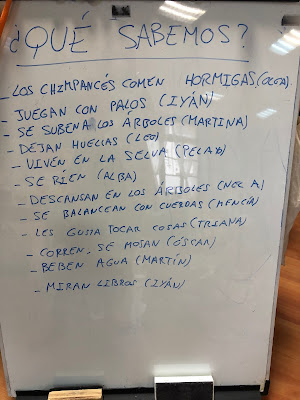 ¿QUÉ SABEMOS?
- LOS CHIMPANCÉS COMEN HORMIGAS (OLGA).
- JUEGAN CON PALOS (IYÁN)
- SE SUBEN A LOS ÁRBOLES (MARTINA)
- DEJAN HUELLAS (LEO)
- VIVEN EN LA SELVA (PELAYO)
- SE RÍEN (ALBA)
- DESCANSAN EN LOS ÁRBOLES (NOR A)
- SE BALANCEAN CON CUERDAS (MENCÍA)
- LES GUSTA TOCAR COSAS (TRIANA)
- CORREN. SE MOJAN (ÓSCAR)
- BEBEN AGUA (MARTÍN)
- MIRAN LIBROS (IYÁN)